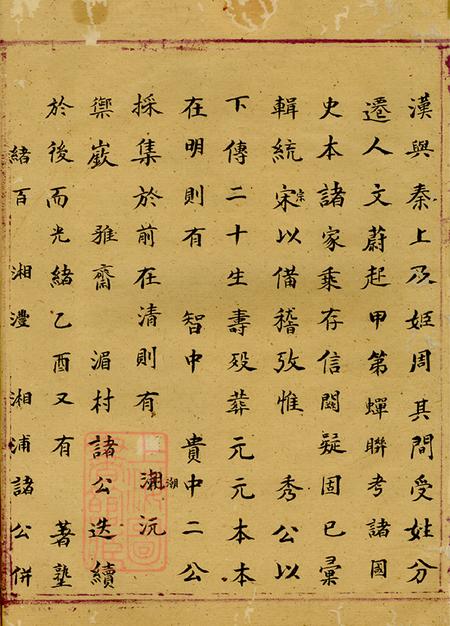 漢與秦上及姬周其間受姓分
遷人文蔚起甲第蟬聯考諸國
史本諸家乘存信闕疑固已彙
輯統宋宗以備稽攷惟 秀公以
下傳二十生壽殁葬元元本本
在明則有 智中 貴中二公
採集於前在清則有 潮沅
禦嶽 雅齋 湄村諸公迭續
於後而光緒乙酉又有 著塾
緒百 湘灃 湘浦諸公併